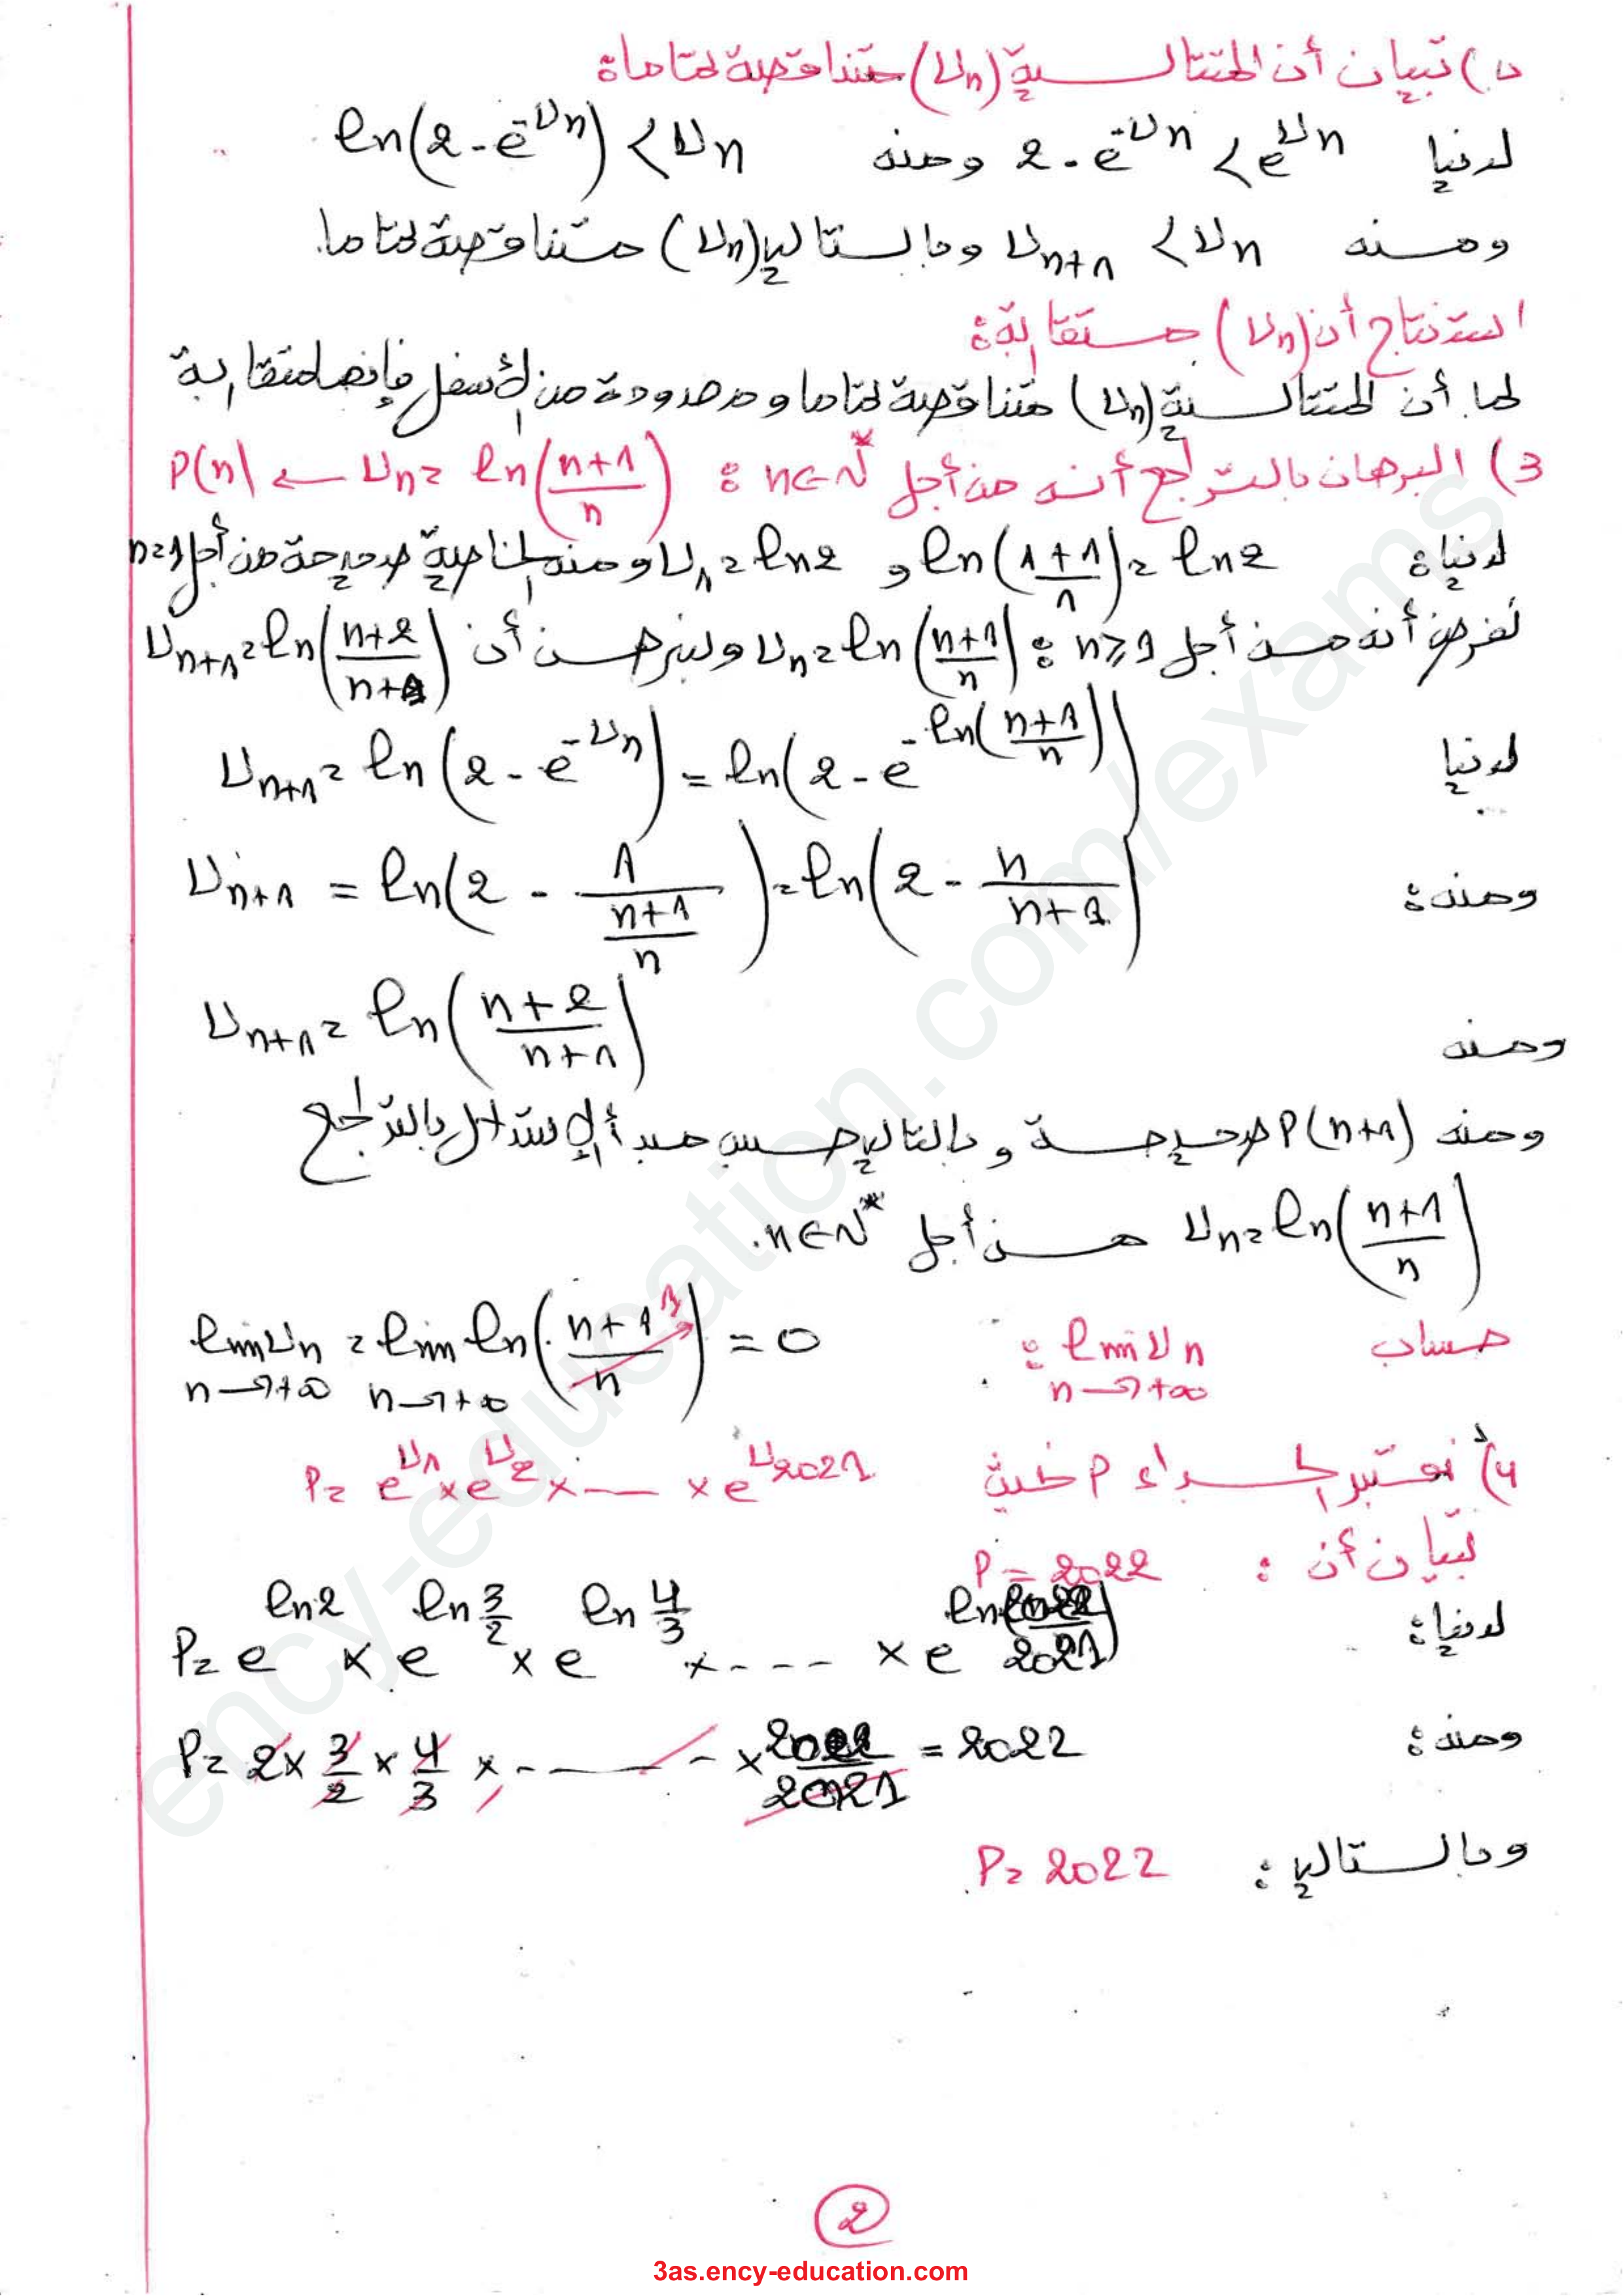 د) تبيان أن المتتالية (Un) متناقصة تماما:
لدينا 2 - e^-Un < e^Un ومنه ln(2 - e^-Un) < Un
ومنه Un+1 < Un وبالتالي (Un) متناقصة تماما.
استنتاج أن (Un) متقاربة:
بما أن المتتالية (Un) متناقصة تماما ومحدودة من الأسفل فإنها متقاربة
3) البرهان بالتراجع أنه من أجل n∈N* : Un = ln((n+1)/n) ← P(n)
لدينا: ln((1+1)/1) = ln2 و U1 = ln2 ومنه الخاصية صحيحة من أجل n=1
نفرض أنه من أجل n≥1 : Un = ln((n+1)/n) ولنبرهن أن Un+1 = ln((n+2)/(n+1))
لدينا Un+1 = ln(2 - e^-Un) = ln(2 - e^-ln((n+1)/n))
ومنه: Un+1 = ln(2 - 1/((n+1)/n)) = ln(2 - n/(n+1))
ومنه Un+1 = ln((n+2)/(n+1))
ومنه P(n+1) صحيحة و بالتالي حسب مبدأ الإستدلال بالتراجع
Un = ln((n+1)/n) من أجل n∈N*.
حساب lim Un n→+∞ : lim Un n→+∞ = lim n→+∞ ln((n+1)/n) = 0
4) نعتبر الجداء P حيث P = e^U1 × e^U2 × ---- × e^U2021
تبيان أن : P = 2022
لدينا: P = e^ln2 × e^ln3/2 × e^ln4/3 × ---- × e^ln(2022/2021)
ومنه: P = 2 × 3/2 × 4/3 × ---- × 2022/2021 = 2022
وبالتالي: P = 2022
2
3as.ency-education.com
ency-education.com/exams